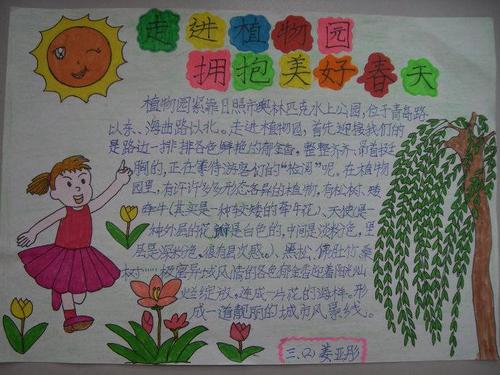 走进植物园
拥抱美好春天
植物园紧靠日照市奥林匹克水上公园,位于青岛路
以东、海曲路以北。走进植物园,首先迎接我们的
是路边一排排各色鲜艳的郁金香,整整齐齐、昂首挺
胸的,正在等待游客们的“检阅”呢。在植物
园里,有许许多多形态各异的植物,有松树、矮
牵牛(其实是一种较矮的牵牛花)、天使是一
种外层的花瓣是白色的,中间是淡粉色,里
层是深粉色,很有层次感。)、黑松、佛肚竹
树……极富异域风情的各色郁金香迎着阳光灿
烂绽放,连成一片花的海洋。形
成一道靓丽的城市风景线。
三.(2) 姜亚彤